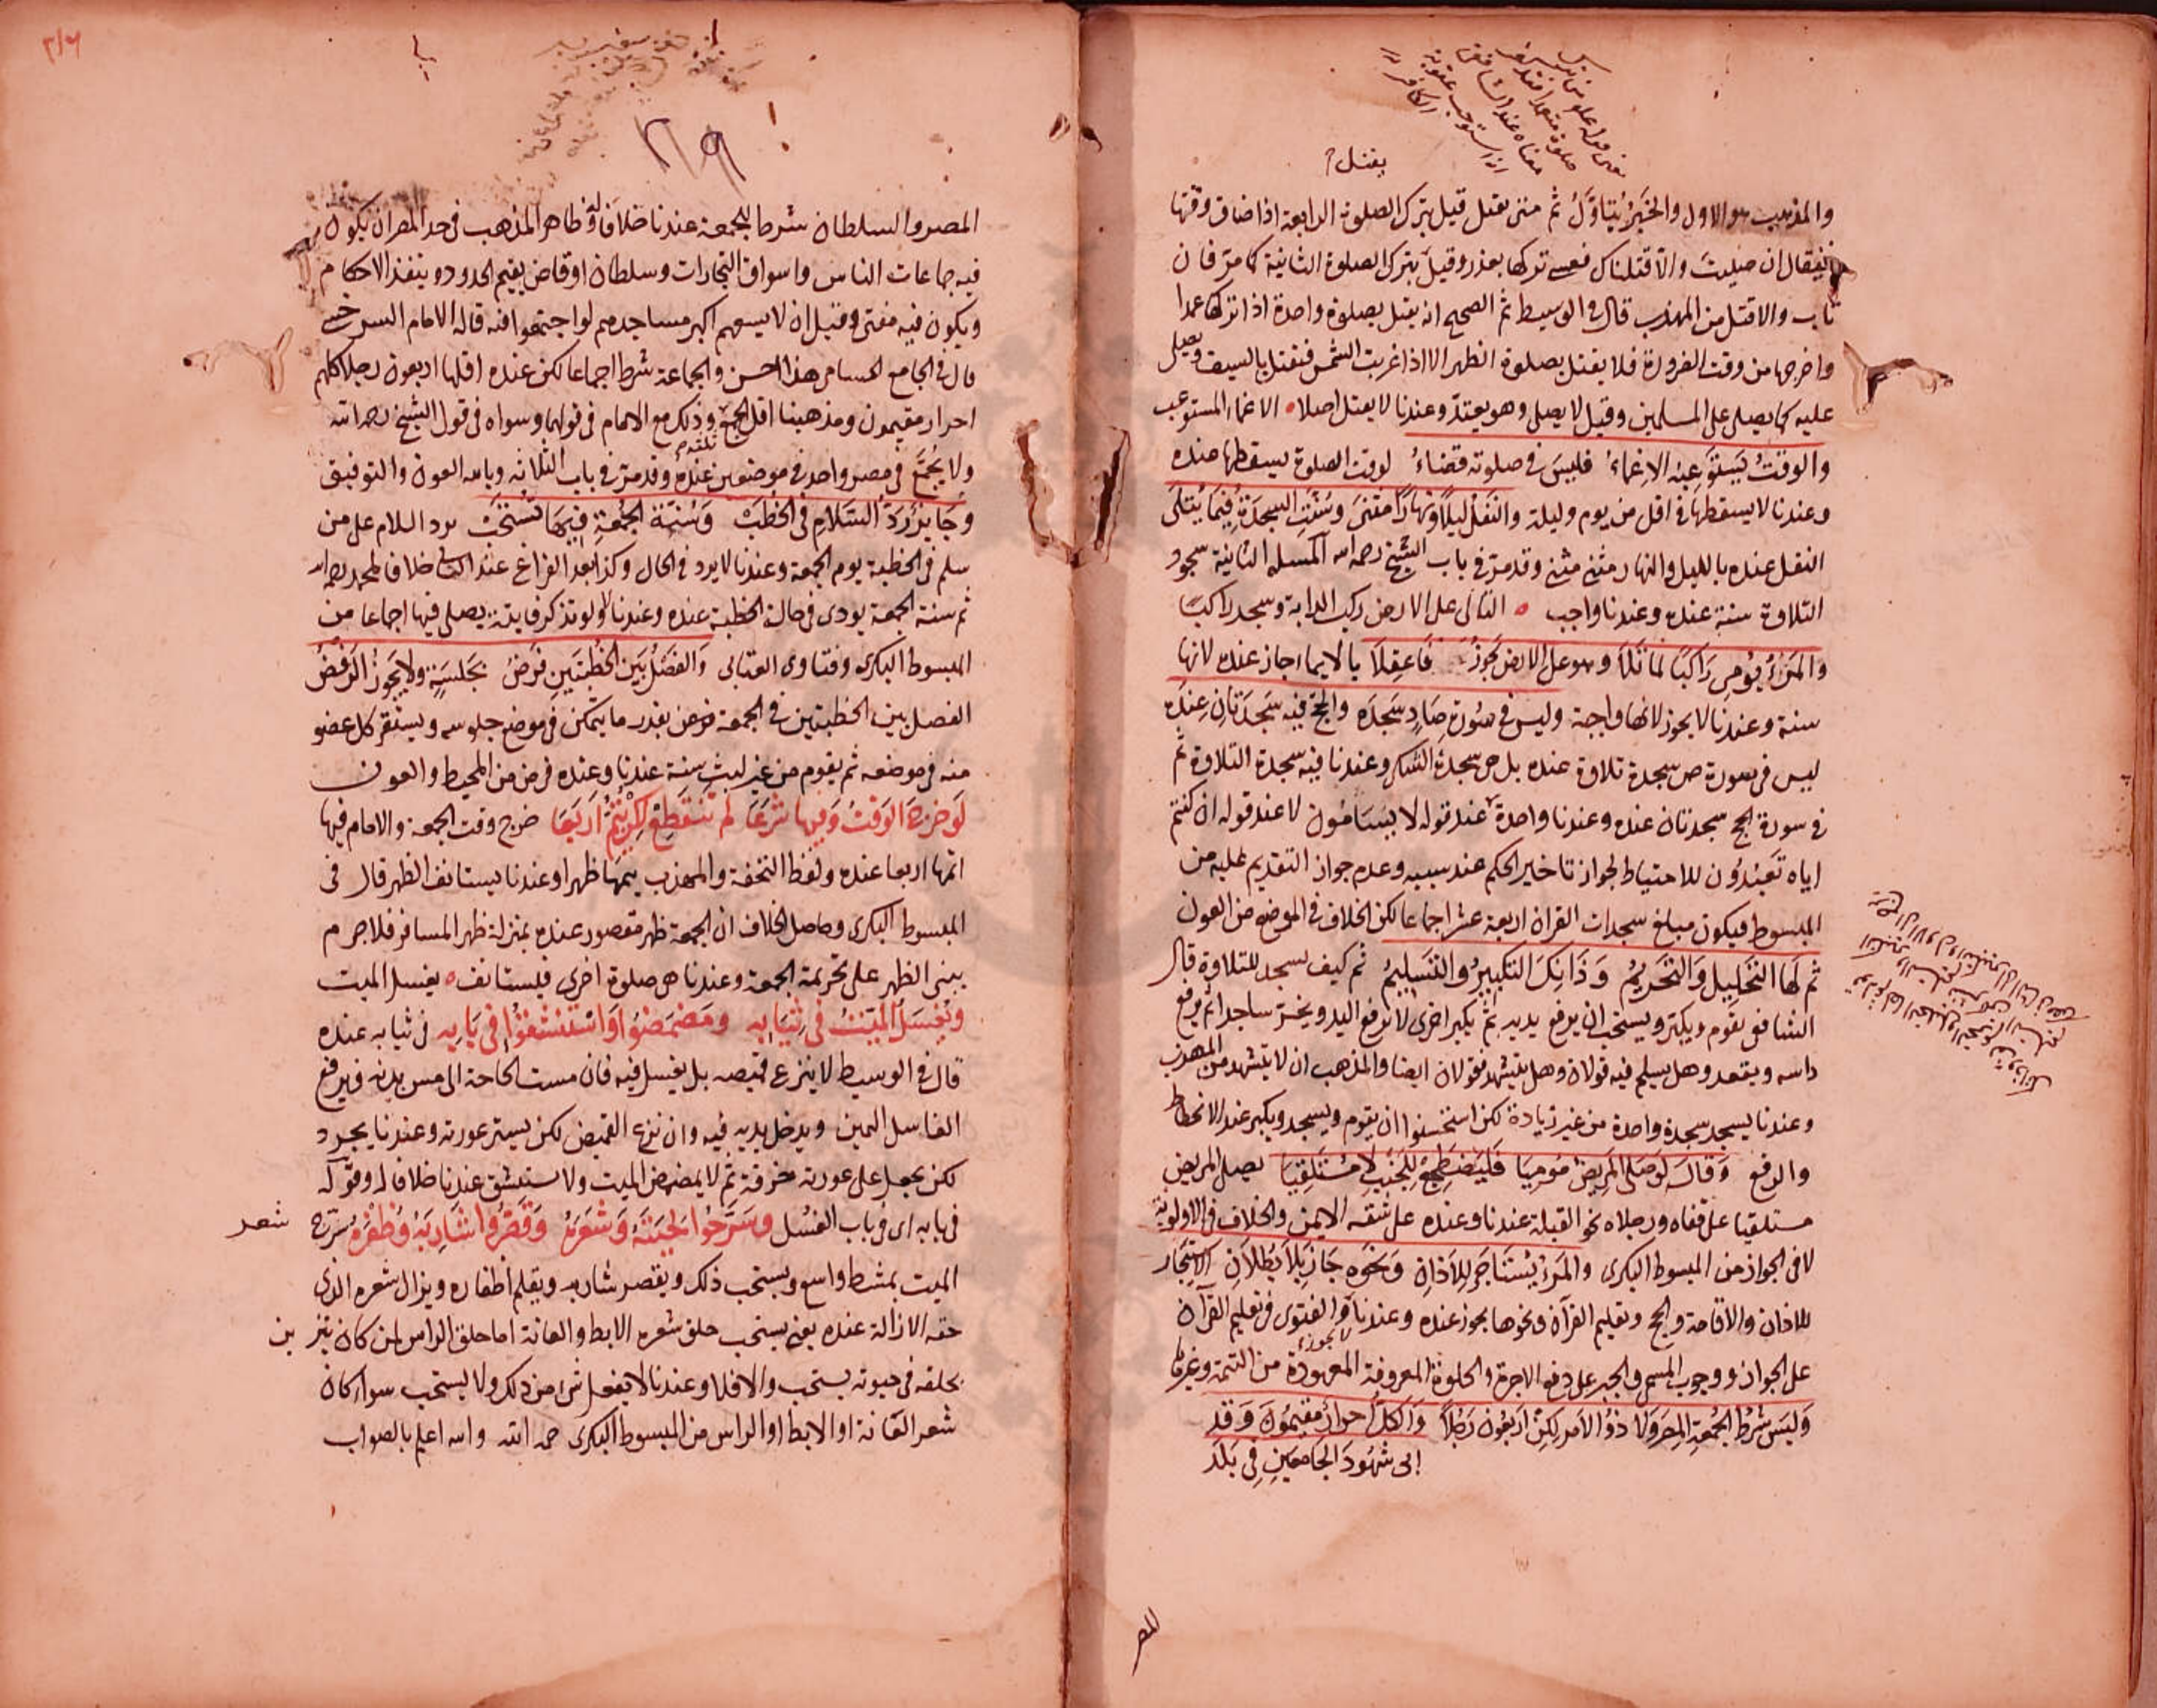 يقتل
والمذهب هو الاول والخبر يتاول ثم متى يقتل قيل بترك الصلوة الرابعة اذا ضاق وقتها
فيقال ان صليت والا قتلناك فعسى تركها بعذر وقيل بترك الصلوة الثانية كما مر فان
تاب والا قتل من المهذب قال في الوسيط ثم الصحيح انه يقتل بصلوة واحدة اذا تركها عمدا
واخرجها من وقت الضرورة فلا يقتل بصلوة الظهر الا اذا غربت الشمس فيقتل بالسيف ويصلى
عليه كما يصلى على المسلمين وقيل لا يصلى وهو يعتد وعندنا لا يقتل اصلا الاغماء المستوعب
والوقت يستوعبه الاغماء فليس في صلوته قضاء لوقت الصلوة يسقطها عنده
وعندنا لا يسقطها في اقل من يوم وليلة والنفل ليلا ونهارا مثنى وسنت السجدة فيما يتلى
النفل عنده بالليل والنهار مثنى مثنى وقد مر في باب الشيخ رحمه الله المسئلة الثانية سجود
التلاوة سنة عنده وعندنا واجب التالى على الارض ركب الدابة وسجد راكبا
والمرء يومى راكبا لما تلا وهو على الارض يجوز فاعقلا بالايماء جاز عنده لانها
سنة وعندنا لا يجوز لانها واجبة وليس في سورة صاد سجده والحج فيه سجدتان عنده
ليس في سورة ص سجدة تلاوة عنده بل هى سجدة الشكر وعندنا فيه سجدة التلاوة ثم
في سورة الحج سجدتان عنده وعندنا واحدة عند قوله لا يسأمون لا عند قوله ان كنتم
اياه تعبدون للاحتياط لجواز تاخير الحكم عند سببه وعدم جواز التقديم عليه من
المبسوط فيكون مبلغ سجدات القرآن اربعة عشر اجماعا لكن الخلاف في الموضع من العون
ثم لها التحليل والتحريم وذانك التكبير والتسليم ثم كيف يسجد للتلاوة قال
الشافعى يقوم ويكبر ويستحب ان يرفع يديه ثم يكبر اخرى لا لرفع اليد ويخر ساجدا ثم يرفع
راسه ويقعد وهل يسلم فيه قولان وهل يتشهد فقولان ايضا والمذهب ان لا يتشهد من المهذب
وعندنا يسجد سجدة واحدة من غير زيادة لكن استحسنوا ان يقوم ويسجد ويكبر عند الانحطاط
والرفع وقال لو صلى المريض موميا فليضطجع للجنب لا مستلقيا يصلى المريض
مستلقيا على قفاه ورجلاه نحو القبلة عندنا وعنده على شقه الايمن والخلاف في الاولوية
لا في الجواز من المبسوط البكرى والمرء يستاجر للاذان ونحوه جاز بلا بطلان الاستيجار
للاذان والاقامة والحج وتعليم القرآن ونحوها يجوز عنده وعندنا لا يجوز والفتوى في تعليم القرآن
على الجواز ووجوب المسمى والجبر على دفع الاجرة والحلوة المعروفة المعهودة من التتمة وغيرها
وليس شرط الجمعة المصر ولا ذو الامر لكن اربعون رجلا والكل احرار مقيمون وقد
ابى شهود الجامعين في بلد
المصر
٢١٩
المصر والسلطان شرط للجمعة عندنا خلافا له وظاهر المذهب في حد المصر ان يكون
فيه جماعات الناس واسواق التجارات وسلطان او قاض يقيم الحدود وينفذ الاحكام
ويكون فيه مفتى وقيل ان لا يسعهم اكبر مساجدهم لو اجتمعوا فيه قاله الامام السرخسى
قال في الجامع الحسامى هذا احسن والجماعة شرط اجماعا لكن عنده اقلها اربعون رجلا كلهم
احرار مقيمون ومذهبنا اقل الجمع وذلك مع الامام في قولهما وسواه في قول الشيخ رحمه الله
ولا يجمع في مصر واحد في موضعين عنده وقد مر في باب الثلاثه وبالله العون والتوفيق
وجايز رد السلام في الخطب وسنة الجمعة فيها تستحب يرد السلام على من
سلم في الخطبة يوم الجمعة وعندنا لا يرد في الحال وكذا بعد الفراغ عند الثانى خلافا لمحمد رحمه الله
ثم سنة الجمعة يودى في حالة الخطبة عنده وعندنا لا ولو تذكر فايتة يصلى فيها اجماعا من
المبسوط البكرى وفتاوى العتابى والفصل بين الخطبتين فرض بجلسة ولا يجوز الرفض
الفصل بين الخطبتين في الجمعة فرض بقدر ما يتمكن في موضع جلوسه ويستقر كل عضو
منه في موضعه ثم يقوم من غير لبث سنة عندنا وعنده فرض من المحيط والعون
لو خرج الوقت وفيها شرعا لم تنقطع لكن يتم اربعا خرج وقت الجمعة والامام فيها
اتمها اربعا عنده ولفظ التحفة والمهذب يتمها ظهرا وعندنا يستانف الظهر قال في
المبسوط البكرى وحاصل الخلاف ان الجمعة ظهر مقصور عنده بمنزلة ظهر المسافر فلا جرم
يبنى الظهر على تحريمة الجمعة وعندنا هى صلوة اخرى فيستانف يغسل الميت
ويغسل الميت في ثيابه ومضمضوا واستنشقوا في بابه في ثيابه عنده
قال في الوسيط لا ينزع قميصه بل يغسل فيه فان مست الحاجة الى مس بدنه فيرفع
الغاسل اليمين ويدخل يديه فيه وان نزع القميص لكن يستر عورته وعندنا يجرد
لكن يجعل على عورته خرقة ثم لا يمضمض الميت ولا يستنشق عندنا خلافا له وقوله
في بابه اى في باب الغسل وسرحوا لحيته وشعره وقصروا شاربه وظفره سرح شعر
الميت بمشط واسع ويستحب ذلك ويقصر شاربه ويقلم اظفاره ويزال شعره الذى
حقه الازالة عنده يعنى يستحب حلق شعره الابط والعانة اما حلق الراس لمن كان يتزين
بحلقه في حيوته يستحب والا فلا وعندنا لا يفعل شئ من ذلك ولا يستحب سواء كان
شعر العانة او الابط او الراس من المبسوط البكرى رحمه الله والله اعلم بالصواب